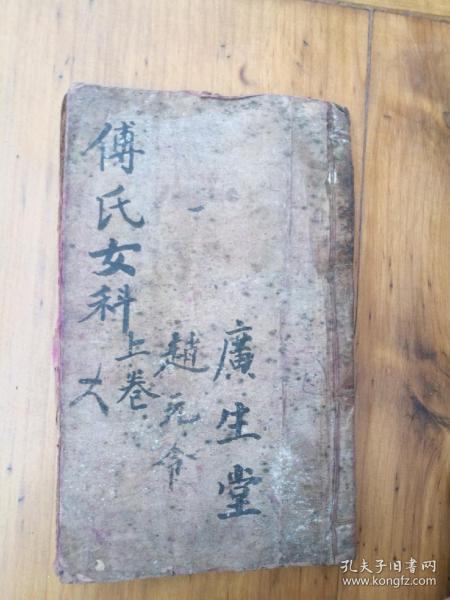 廣生堂
趙元令
傅氏女科上卷
孔夫子旧书网
www.kongfz.com